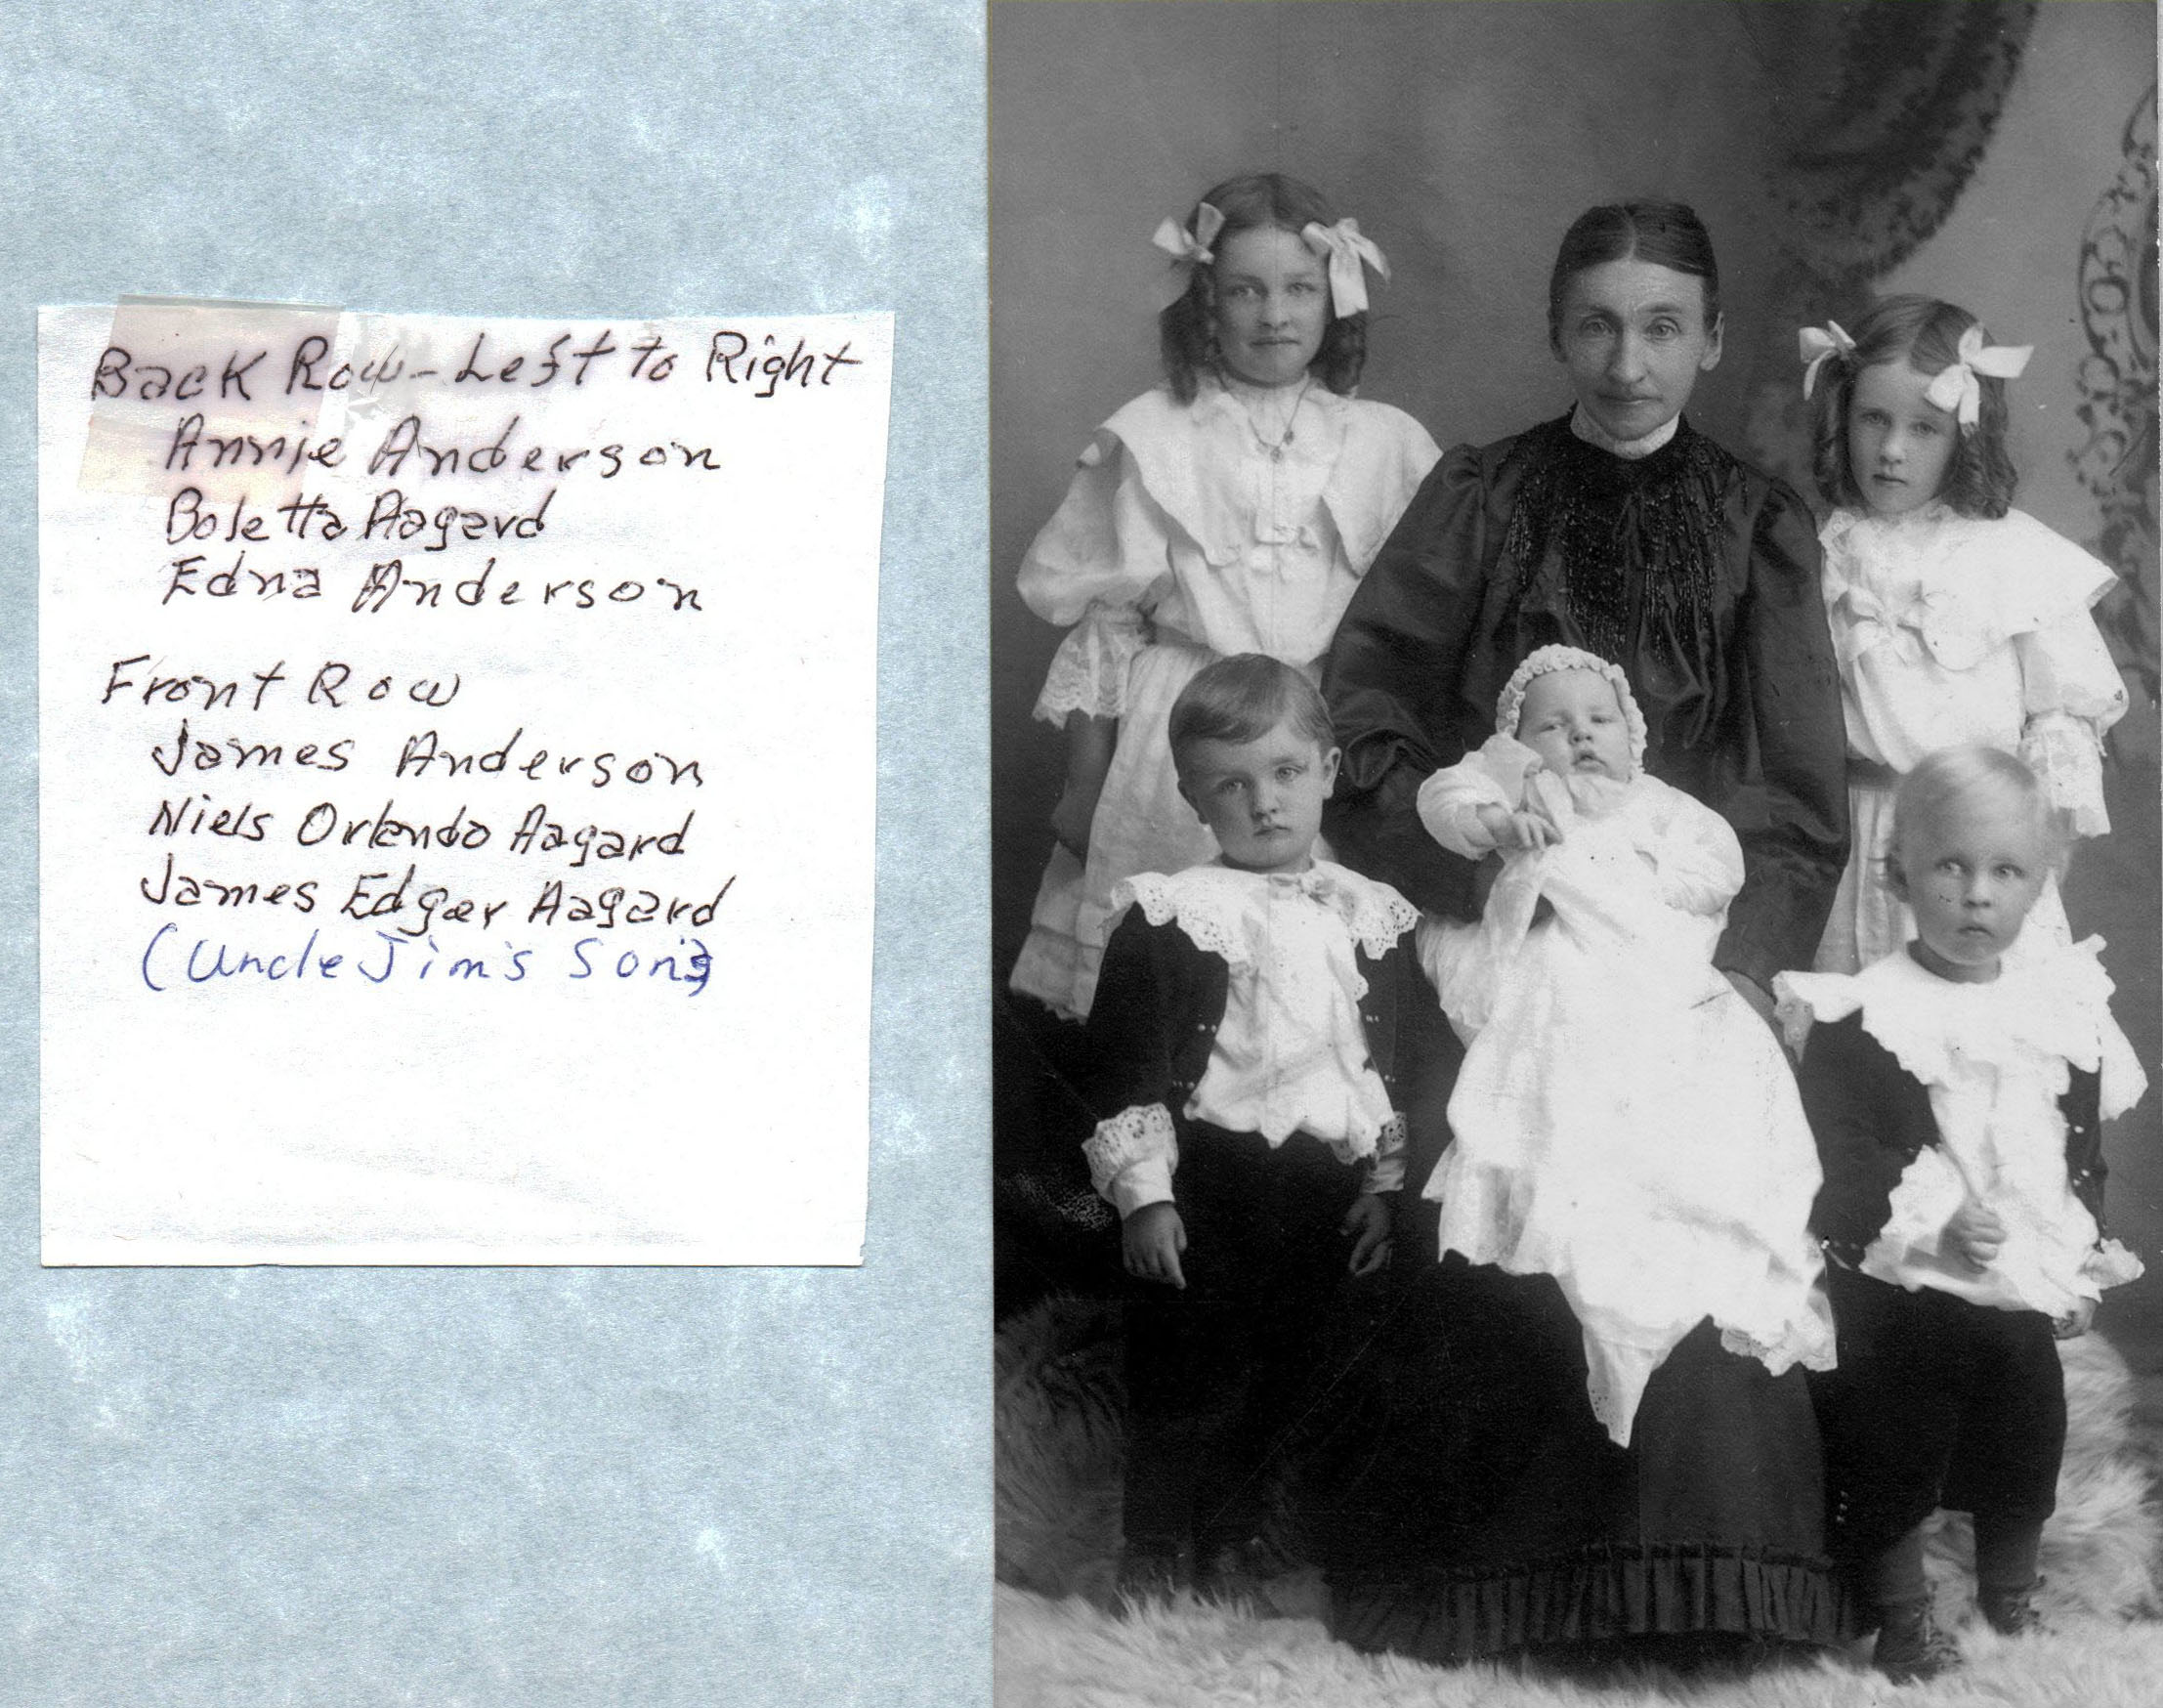 Back Row - Left to Right
Annie Anderson
Boletta Aagard
Edna Anderson
Front Row
James Anderson
Niels Orlando Aagard
James Edgar Aagard
(Uncle Jim's Sons)